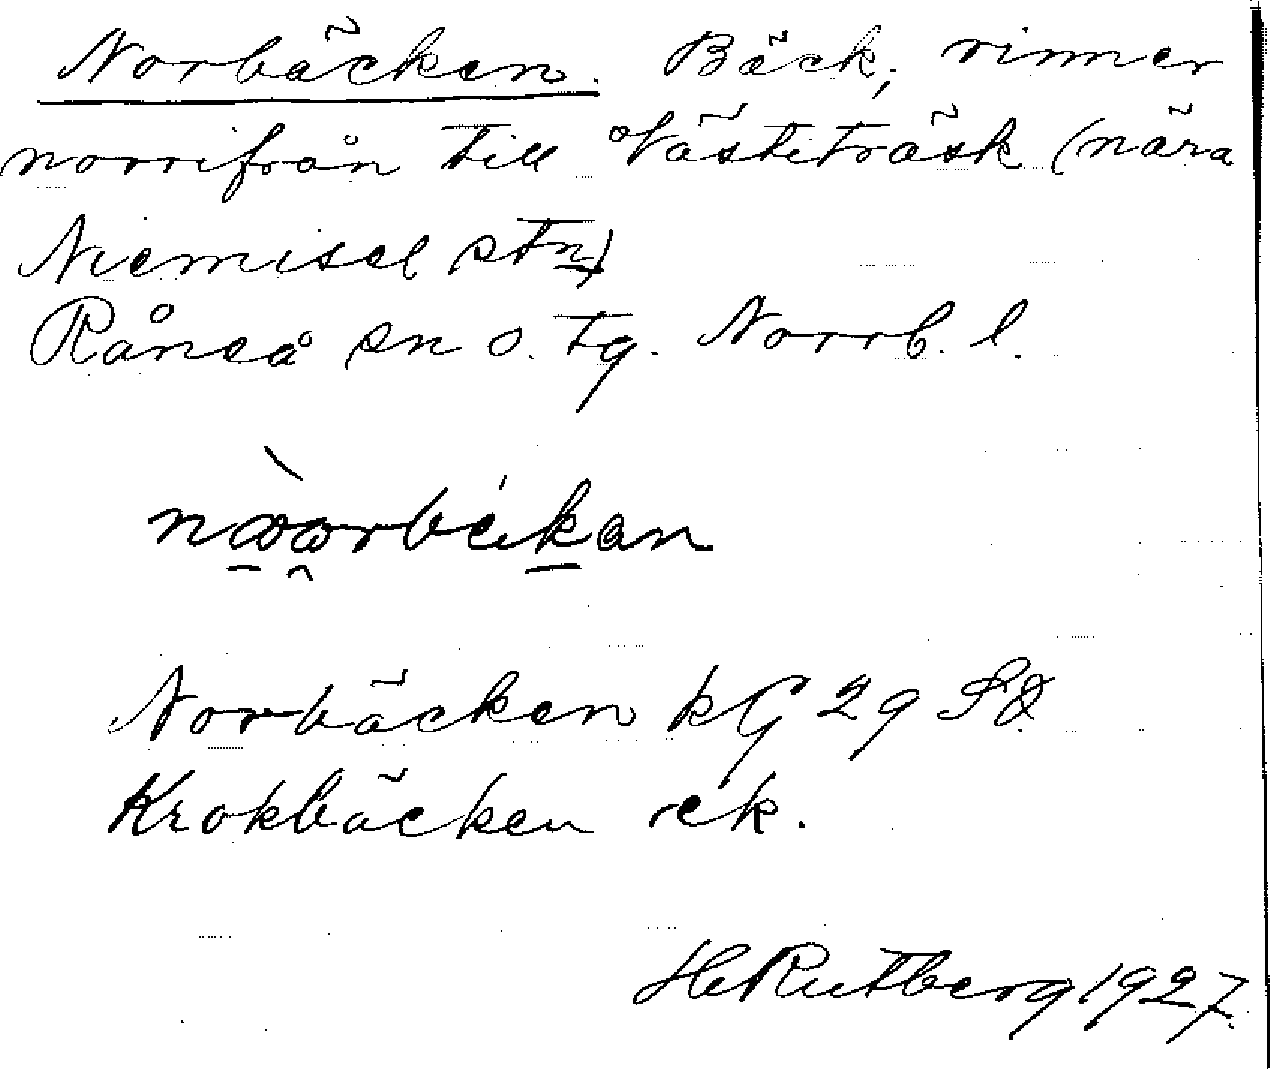 Norbäcken. Bäck, rinner
norrifrån till Västiträsk (nära
Niemisel stn)
Råneå sn o. tg. Norrb. l.
Norbäcken kG 29 SO
Krokbäcken rek.
H Rutberg 1927.